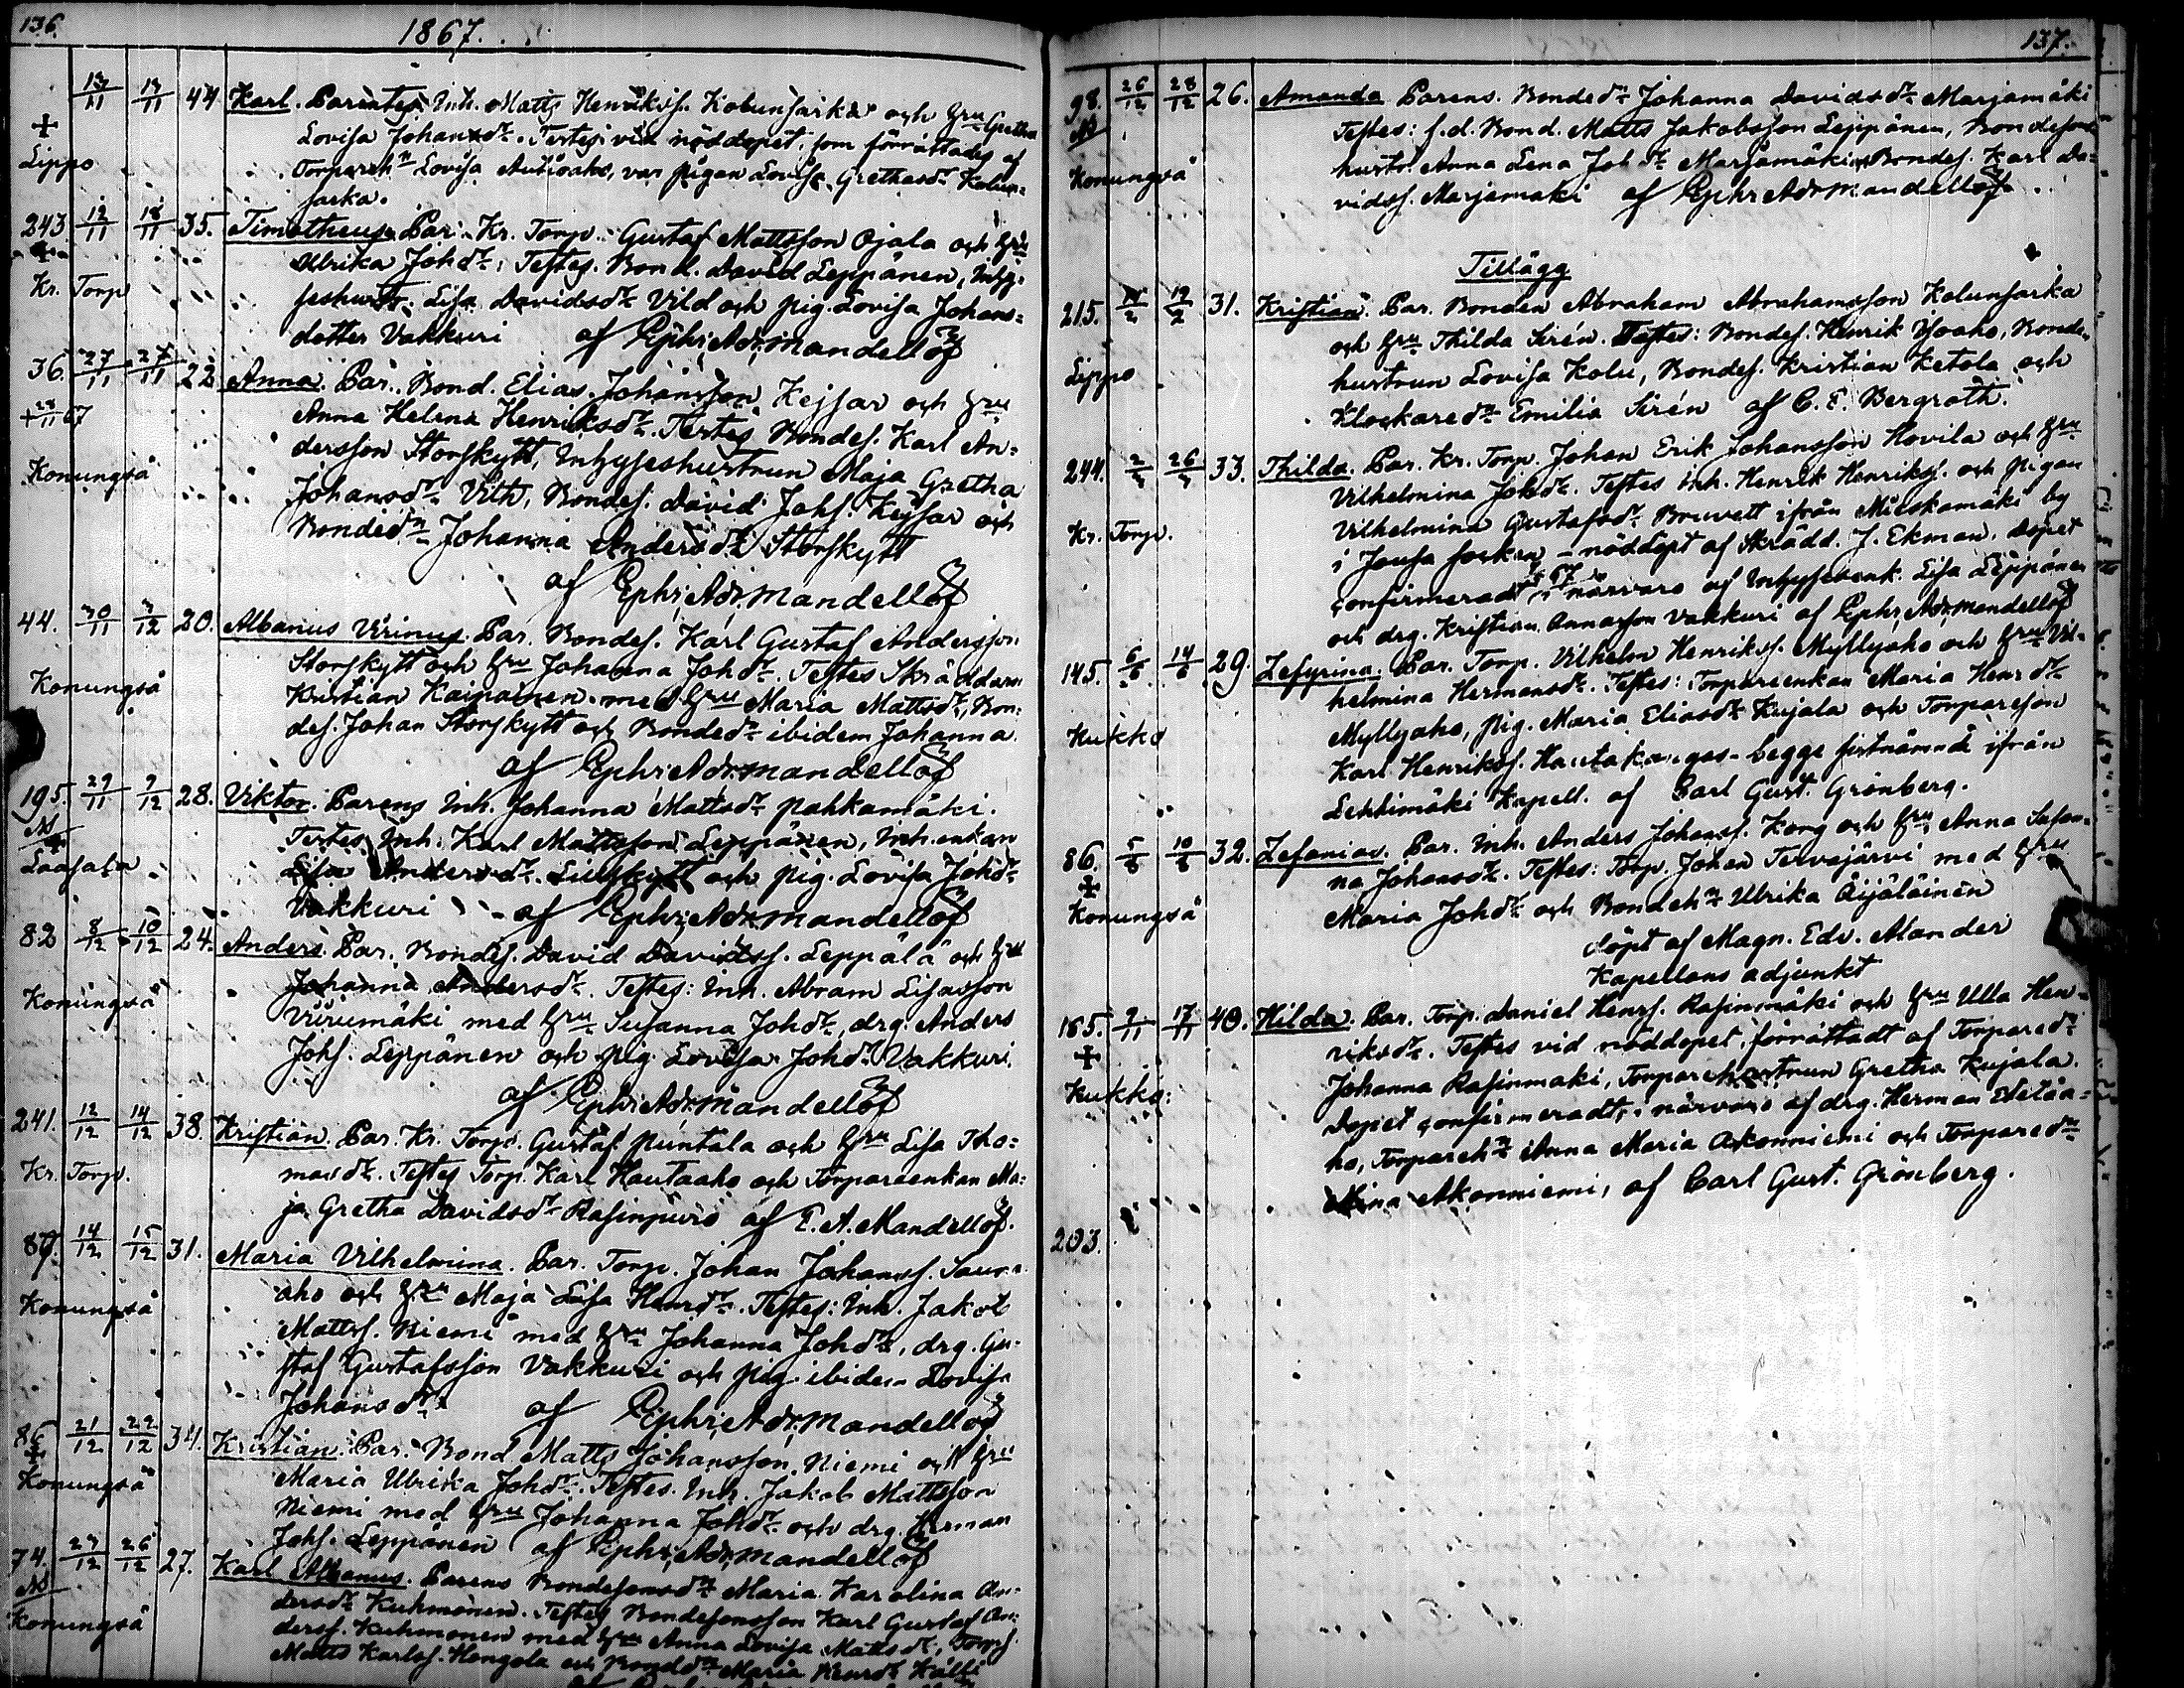 136.
1867.
13/11 13/11 44 Karl. Parentes Inh. Matts Henrikss. Kolunsarka och hru Gretha
+ Lovisa Johansdr. Testes vid nöddopet, som förrättades af
Lippo Torpareh. Lovisa Autioaho, var pigan Lovisa Grethasdr Kolun=
sarka.
243 12/11 18/11 35. Timotheus. Par. Kr. Torp. Gustaf Mattsson Ojala och hru
+ Ulrika Johdr. Testes. Bond. David Leppänen, Inhy=
Kr. Torp seshustr. Lisa Davidsdr Vild och pig. Lovisa Johans=
dotter Vakkuri af Ephr. Adr. Mandellöf
36. 27/11 27/11 22 Anna. Par. Bond. Elias Johansson Kejsar och hru
+ 28/11 67 Anna Helena Henriksdr. Testes Bondes. Karl An=
dersson Storskytt, Inhyseshustrun Maja Gretha
Konungså Johansdr Vilth, Bondes. David Johs. Kejsar och
Bondedr Johanna Andersdr Storskytt
af Ephr. Adr. Mandellöf
44. 30/11 /12 20. Albanus Verinus. Par. Bondes. Karl Gustaf Andersson
Storskytt och hru Johanna Johdr. Testes Skräddare
Konungså Kristian Kaipainen med hru Maria Mattsdr, Bon=
des. Johan Storskytt och Bondedr ibidem Johanna.
af Ephr. Adr. Mandellöf
195. 29/11 9/12 28. Viktor. Parens Inh. Johanna Mattsdr Pahkamäki.
Testes Inh. Karl Mattsson Leppänen, Inh. enkan
Laasala Lisa Andersdr. Lillskytt och pig. Lovisa Johdr
Vakkuri af Ephr. Adr. Mandellöf
82 8/12 10/12 24. Anders. Par. Bondes. David Davidss. Leppälä och hru
Johanna Andersdr. Testes: Inh. Abram Lisasson
Konungså Viirumäki med hru Susanna Johdr, drg. Anders
Johs. Leppänen och pig. Lovisa Johdr Vakkuri.
af Ephr. Adr. Mandellöf
241. 12/12 14/12 38. Kristian. Par. Kr. Torp. Gustaf Puntala och hru Lisa Tho=
Kr. Torp. masdr. Testes Torp. Karl Hautaaho och Torpareenkan Ma=
ja Gretha Davidsdr Rasinpuro af E. A. Mandellöf.
87. 14/12 15/12 31. Maria Vilhelmina. Par. Torp. Johan Johanss. Saun=
aho och hru Maja Lisa Henrdr. Testes: Inh. Jakob
Konungså Mattss. Niemi med hru Johanna Johdr, drg. Gu=
staf Gustafsson Vakkuri och pig. ibidem Lovisa
Johansdr af Ephr. Adr. Mandellöf
86 21/12 22/12 34. Kristian. Par. Bond Matts Johansson Niemi och hru
+ Maria Ulrika Johdr. Testes. Inh. Jakob Mattsson
Konungså Niemi med hru Johanna Johdr och drg. Herman
Johs. Leppänen af Ephr. Adr. Mandellöf
74. 23/12 26/12 27. Karl Albanus. Parens Bondesonsdr Maria Karolina An=
dersdr Kuhmonen. Testes Bondesonsson Karl Gustaf An=
Konungså derss. Kuhmonen med hru Anna Lovisa Mattsdr, Torps.
Matts Karlss. Hongola och Bonddr Maria Henrdr Källi
137.
98. 26/12 28/12 26. Amanda Parens. Bondedr Johanna Davidsdr Marjamäki
Testes: f.d. Bond. Matts Jakobsson Leppänen, Bondesons
Konungså hustr. Anna Lena Johdr Marjamäki, Bondes. Karl Da=
vidss. Marjamaki af Ephr. Adr. Mandellöf
Tillägg
215. /2 19/2 31. Kristian. Par. Bonden Abraham Abrahamsson Kolunsarka
och hru Thilda Sirén. Testes: Bondes. Henrik Yliaho, Bonde=
Lippo hustrun Lovisa Kolu, Bondes. Kristian Ketola och
Klockaredr Emilia Sirén af C. E. Bergroth.
244. 26/ 33. Thilda. Par. Kr. Torp. Johan Erik Johansson Hovila och hru
Vilhelmina Johdr. Testes Inh. Henrik Henrikss. och pigan
Kr. Torp. Vilhelmina Gustafsdr Bruvett ifrån Mieskamäki by
i Soufa socken - nöddöpt af Skrädd. J. Ekman. Dopet
confirmeradt i närvaro af Inhysesenk. Lisa Leppänen
och drg. Kristian Annasson Vakkuri af Ephr. Adr. Mandellöf
145. 6/ 14/ 29. Zefyrina. Par. Torp. Vilhelm Henrikss. Myllyaho och hru Vil=
helmina Hermansdr. Testes: Torpareenkan Maria Henrdr
Kukko Myllyaho, pig. Maria Eliasdr Kujala och Torpareson
Karl Henrikss. Hautakangas - begge sistnämnde ifrån
Lehtimäki Kapell. af Carl Gust. Grönberg.
86. 5/ 10/ 32. Zefanias. Par. Inh. Anders Johanss. Korg och hru Anna Susan=
+ na Johansdr. Testes: Torp. Johan Tervajärvi med hru
Konungså Maria Johdr och Bondeh. Ulrika Äijäläinen
döpt af Magn. Edv. Alander
Kapellans adjunkt
165. 9/11 17/11 40. Hilda. Par. Torp. Daniel Henrs. Rasinmäki och hru Ulla Hen=
+ riksdr. Testes vid nöddopet, förrättadt af Torparedr
Kukko Johanna Rasinmaki, Torparehustrun Gretha Kujala.
Dopet confirmeradt i närvaro af drg. Herman Vitaa=
ho, Torpareh. Anna Maria Akonniemi och Torparedr
Mina Akonniemi, af Carl Gust. Grönberg.
203.